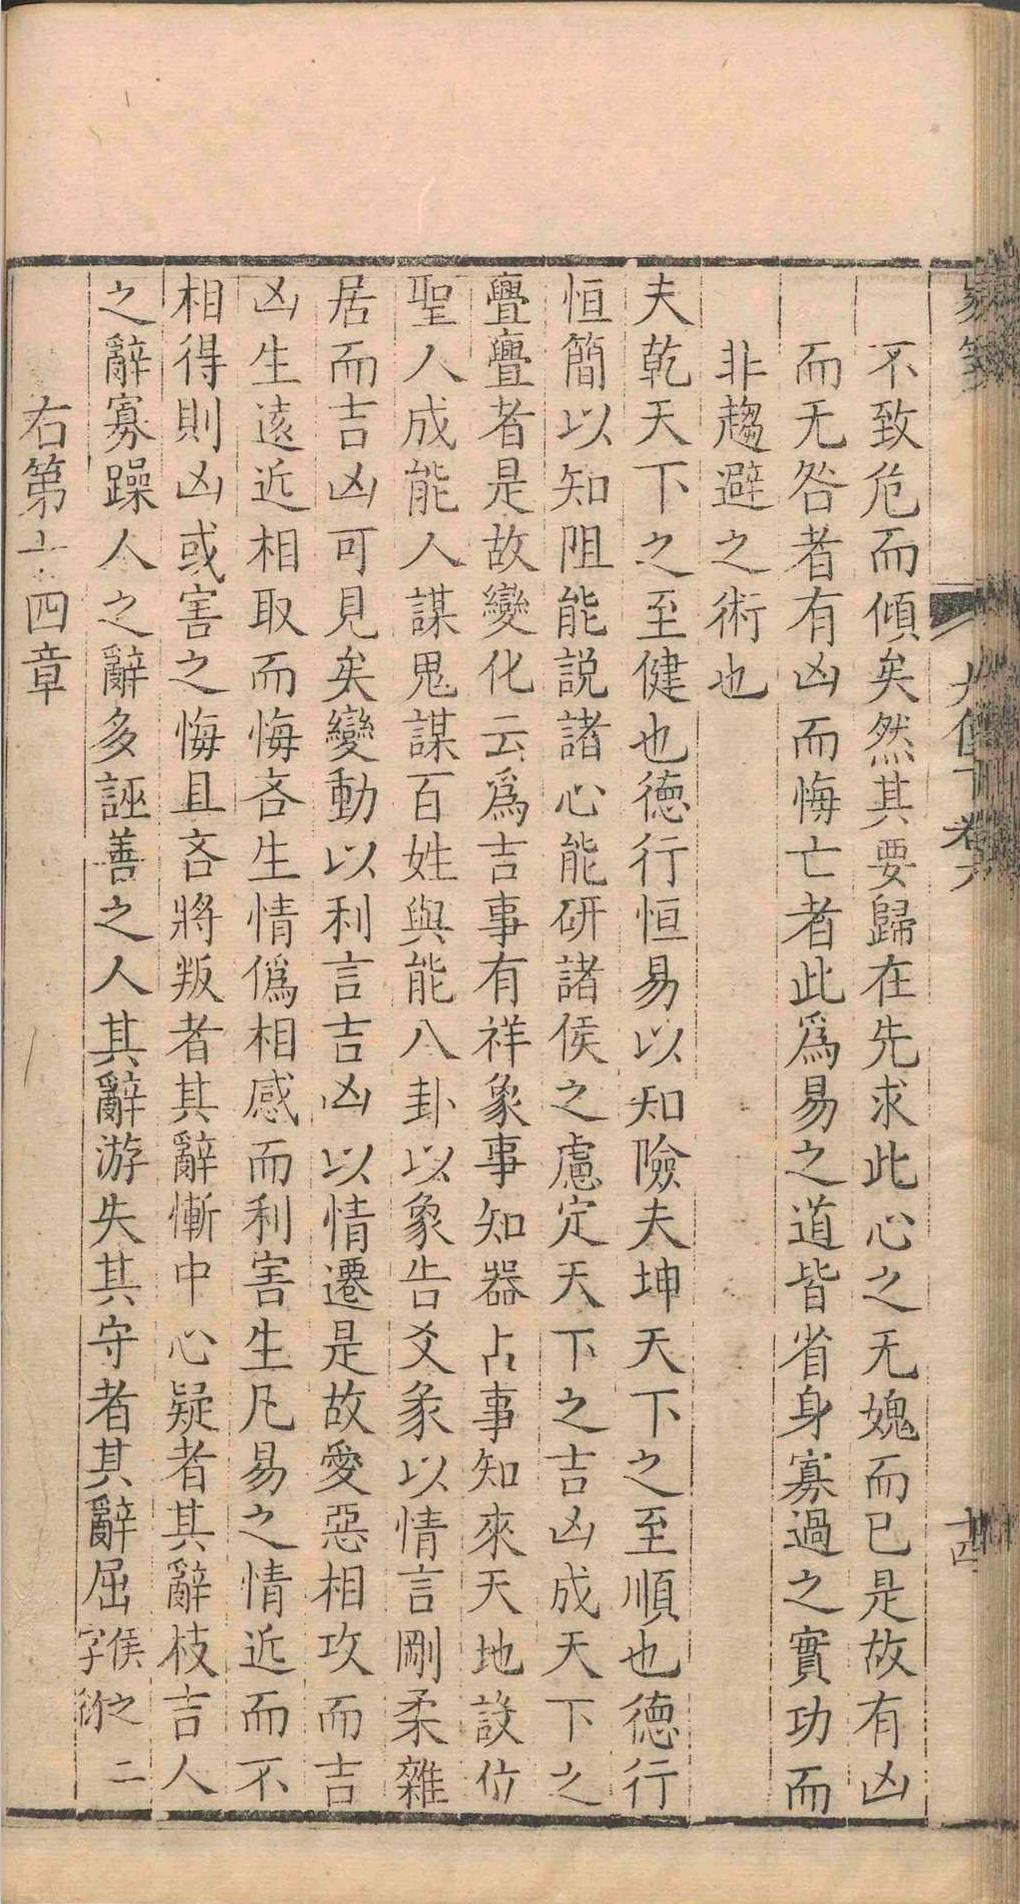 不致危而傾矣然其要歸在先求此心之无媿而已是故有凶
而无咎者有凶而悔亡者此爲易之道皆省身寡過之實功而
非趨避之術也
夫乾天下之至健也德行恒易以知險夫坤天下之至順也德行
恒簡以知阻能說諸心能研諸侯之慮定天下之吉凶成天下之
亹亹者是故變化云爲吉事有祥象事知器占事知來天地設位
聖人成能人謀鬼謀百姓與能八卦以象告爻彖以情言剛柔雜
居而吉凶可見矣變動以利言吉凶以情遷是故愛惡相攻而吉
凶生遠近相取而悔吝生情僞相感而利害生凡易之情近而不
相得則凶或害之悔且吝將叛者其辭慚中心疑者其辭枝吉人
之辭寡躁人之辭多誣善之人其辭游失其守者其辭屈侯之二
字衍
右第十四章
大傳下卷六
十四